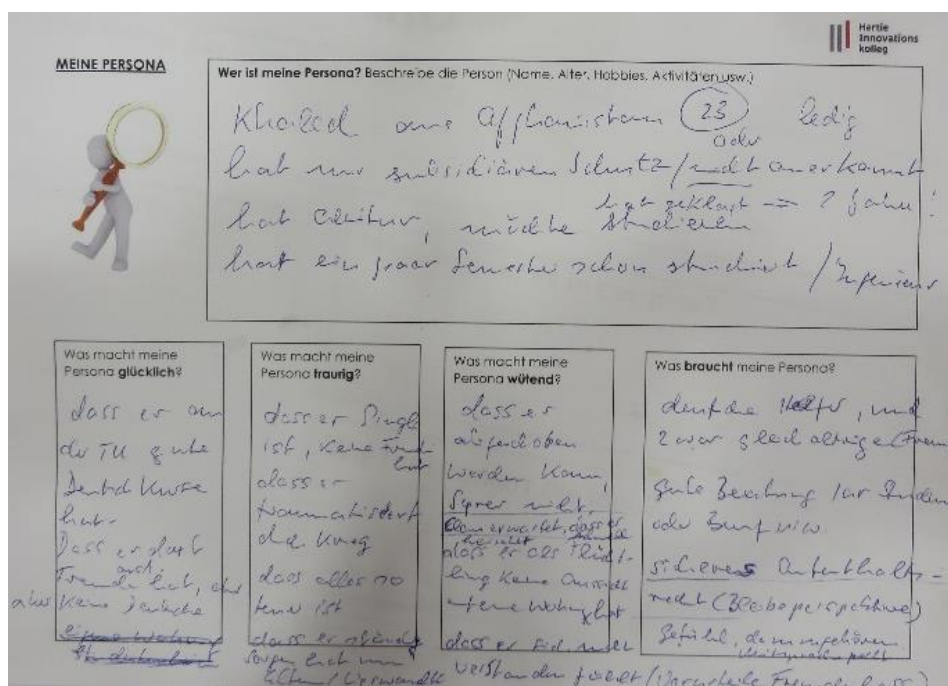 Hertie
Innovations
kolleg
MEINE PERSONA
Wer ist meine Persona? Beschreibe die Person (Name, Alter, Hobbies, Aktivitäten usw.)
Khaled aus Afghanistan 23 ledig
oder
hat nur subsidiären Schutz / nicht anerkannt
hat geklagt = 2 Jahre!
hat Abitur, möchte studieren
hat ein paar Semester schon studiert / Ingenieur
Was macht meine
Persona glücklich?
dass er an
der TU gute
Deutsch Kurse
hat.
Dass er dort
auch
Freunde hat,
aber keine Deutsche
Was macht meine
Persona traurig?
dass er Single
ist, keine Freundin
hat
dass er
traumatisiert
Krieg
dass alles so
teuer ist
dass er ständig
Sorgen hat um
Eltern / Verwandte
Was macht meine
Persona wütend?
dass er
abgeschoben
werden kann,
Syrer nicht.
erwartet, dass er
dass er als Flücht-
ling keine Aussicht
Wohnung hat
dass er sich nicht
verstanden fühlt / (Vorurteile Fremdenhass)
Was braucht meine Persona?
deutsche Helfer, und
zwar gleichaltrige
gute Beratung
oder Beruf usw.
sicheres Aufenthalts-
recht (Bleibeperspektive)
Gefühl, dazuzugehören